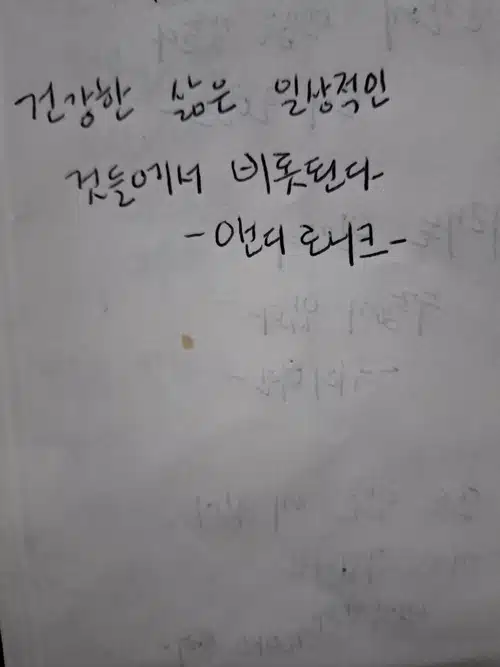 건강한 삶은 일상적인
것들에서 비롯된다
-앤디 로니크-